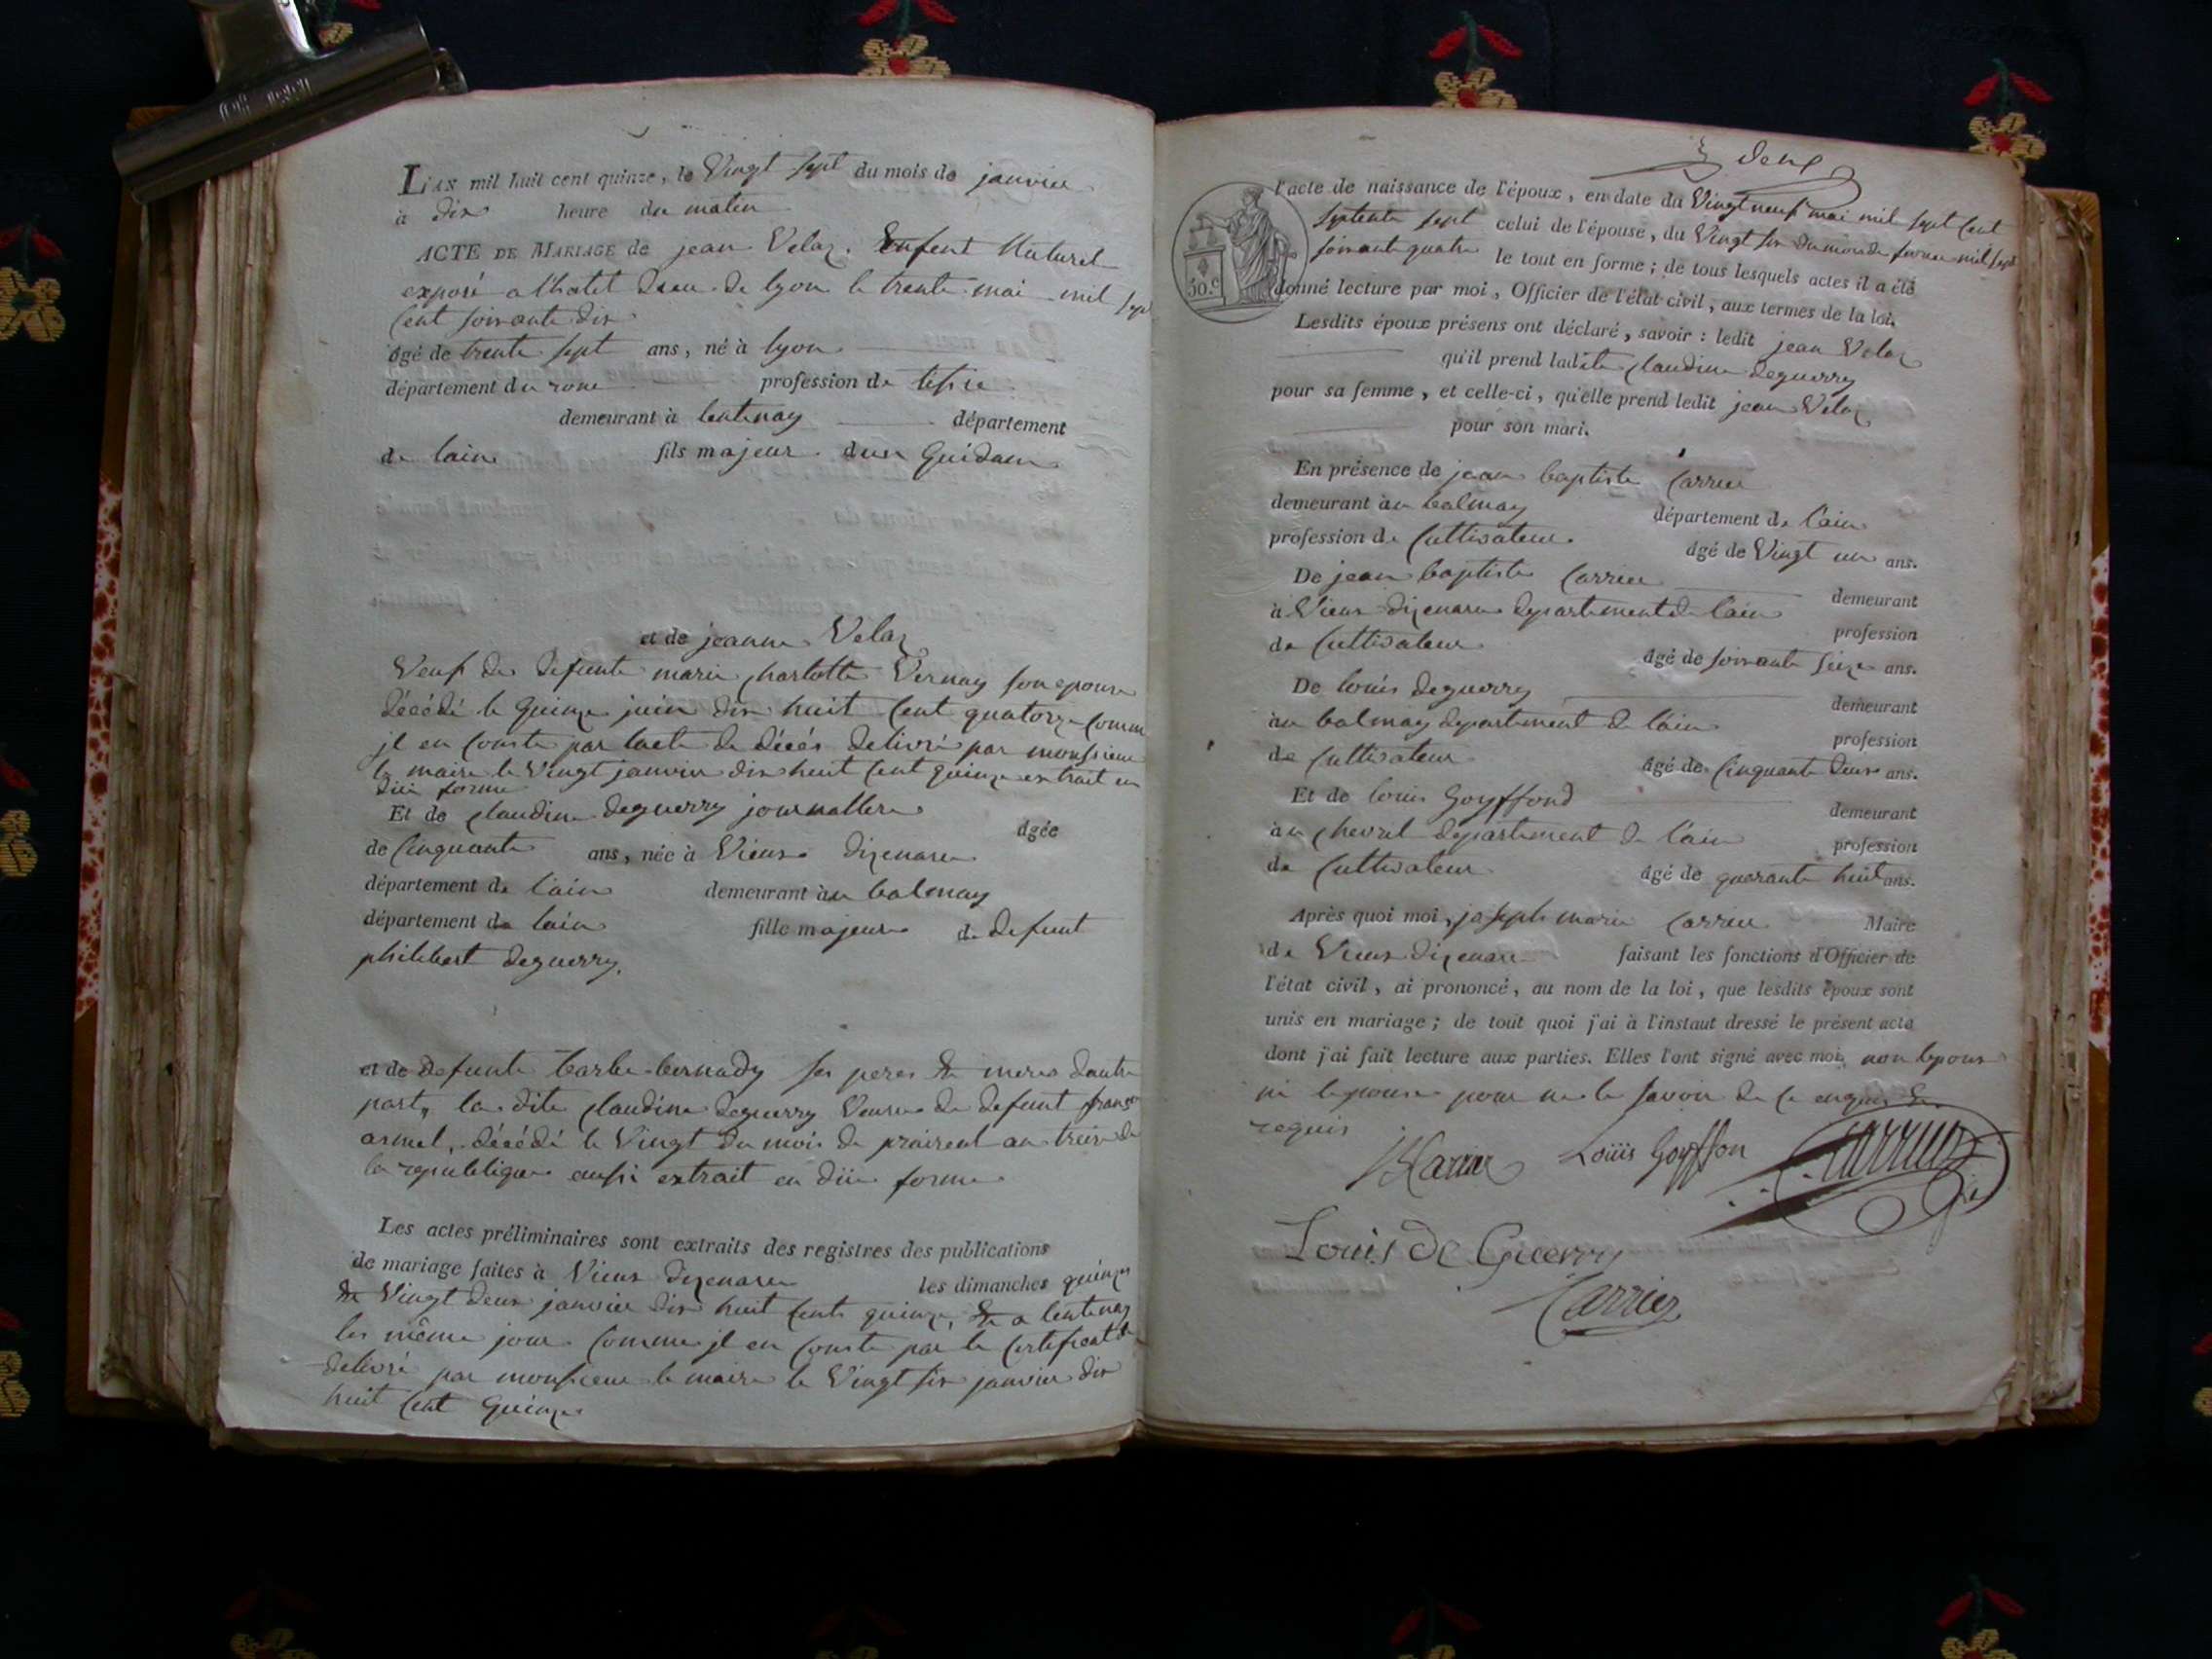 L'AN mil huit cent quinze, le Vingt sept du mois de janvier
à dix heure du matin
ACTE DE MARIAGE de jean Velaz. Enfent Naturel
exposé a lhotel dieu de lyon le trente mai mil sept
Cent soixante dix
âgé de trente sept ans, né à lyon
département du rone profession de tisie
demeurant à lentenay département
de lain fils majeur dun Guidam
et de jeanne Velaz
Veuf de defunte marie charlotte Vernay son epouse
décédé le quinze juin dix huit Cent quatorze comme
jl en Conste par lacte de décés delivré par monsieur
le maire le Vingt janvier dix huit Cent quinze extrait en
düe forme
Et de claudine deguerry journallere
âgée
de Cinquante ans, née à Vieux dizenave
département de l'ain demeurant àu balmay
département de lain fille majeure de defunt
philibert deguerry,
et de defunte barbe bernady ses peres & meres dautre
part, la dite claudine deguerry Veuve de defunt franço
armel, décédé le Vingt du mois de praireal an treize de
la republique ausi extrait en düe forme
Les actes préliminaires sont extraits des registres des publications
de mariage faites à Vieux dizenave les dimanches quinze
& Vingt deux janvier dix huit Cent quinze, & a lentenay
les même jour Comme jl en Conste par le Certificat de
delivré par monsieur le maire le Vingt six janvier dix
huit Cent Quinze
deux
l'acte de naissance de l'époux, en date du Vingt neuf mai mil sept Cent
septente sept celui de l'épouse, du Vingt six du mois de fevrier mil sept
soixante quatre le tout en forme ; de tous lesquels actes il a été
donné lecture par moi, Officier de l'état civil, aux termes de la loi.
30.c
Lesdits époux présens ont déclaré, savoir : ledit jean Velaz
qu'il prend ladite claudine deguerry
pour sa femme, et celle-ci, qu'elle prend ledit jean Velaz
pour son mari.
En présence de jean baptiste Carrier
demeurant àu balmay département de l'ain
profession de Cultivateur âgé de Vingt un ans.
De jean baptiste Carrier demeurant
à Vieux dizenave departement de lain profession
de Cultivateur âgé de soixante seize ans.
De louis deguerry demeurant
àu balmay departement de l'ain profession
de Cultivateur âgé de Cinquante deux ans.
Et de louis Goyffond demeurant
àu chevril departement de l'ain profession
de Cultivateur âgé de quarante huit ans.
Après quoi moi, joseph marie Carrier Maire
de Vieux dizenave faisant les fonctions d'Officier de
l'état civil, ai prononcé, au nom de la loi, que lesdits époux sont
unis en mariage ; de tout quoi j'ai à l'instaut dressé le présent acte
dont j'ai fait lecture aux parties. Elles l'ont signé avec moi, non lepoux
ni lepouse pour ne le savoir de ce enquis &
requis
Louis Goyffon
Louis de Guerry
Carrier